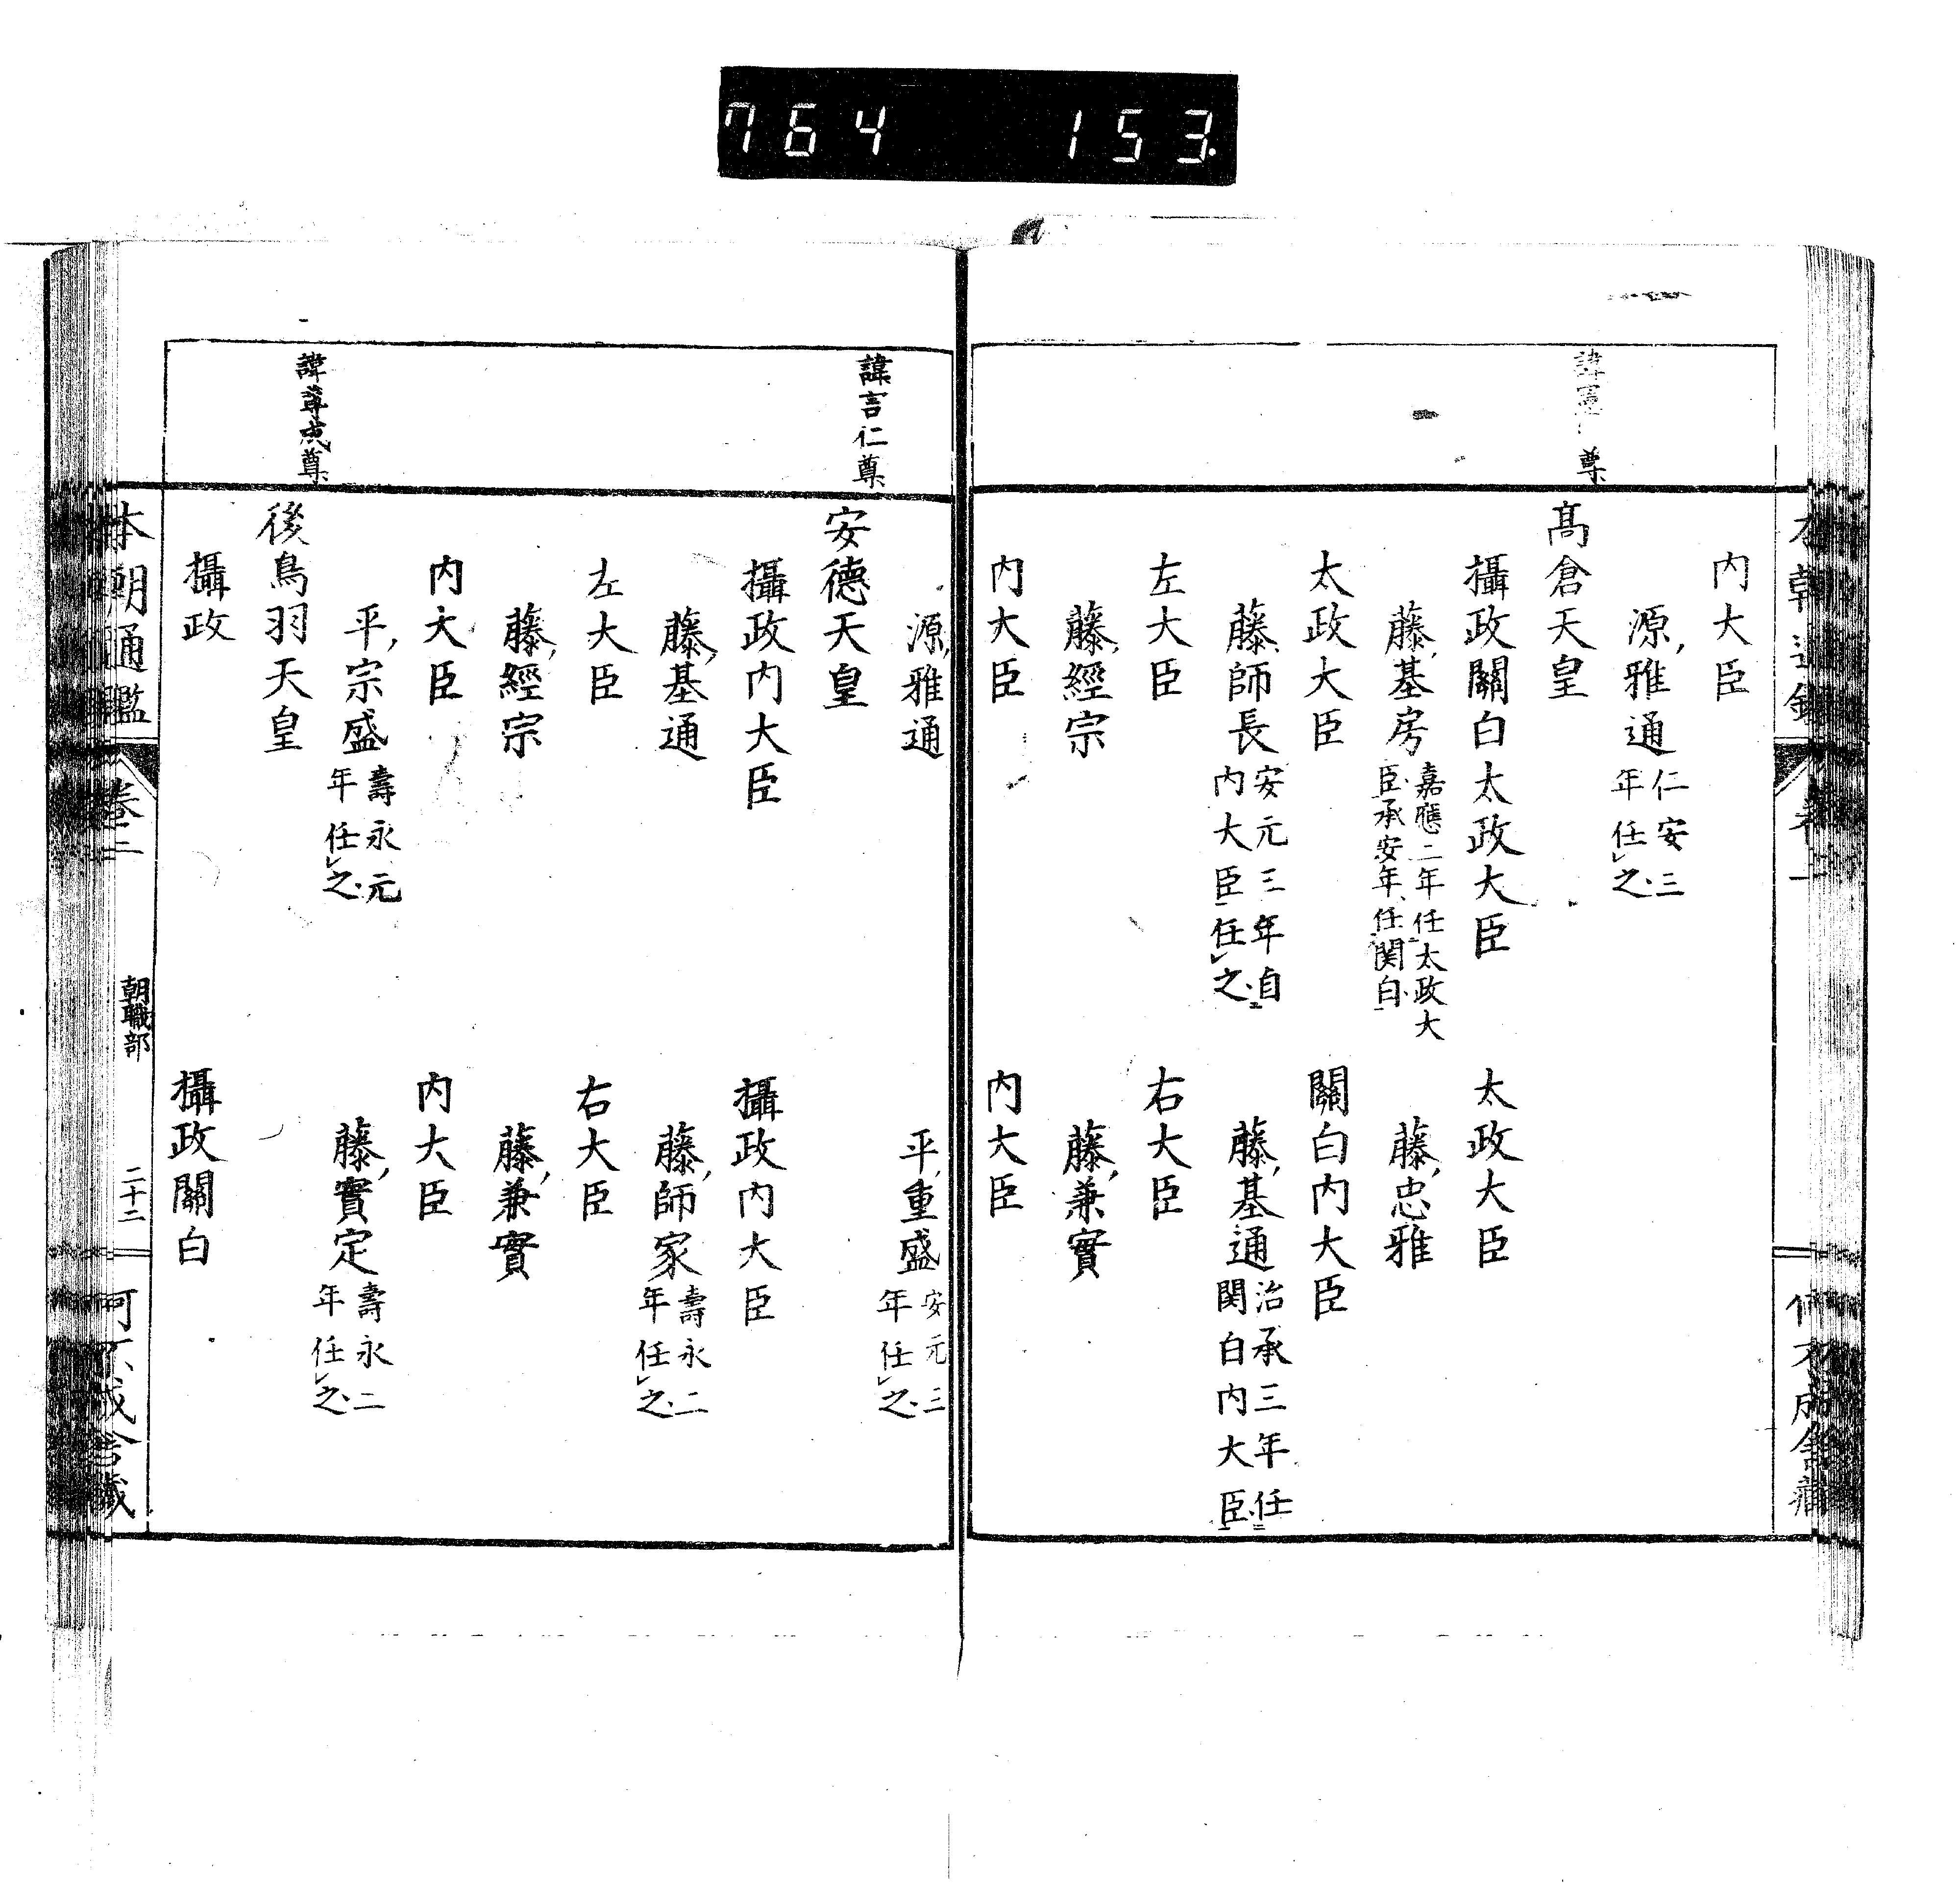 764 153.
內大臣
源雅通 仁安三
年任之
諱憲 尊
高倉天皇
攝政關白太政大臣
太政大臣
藤基房 嘉應二年任太政大
臣承安年任関白
藤忠雅
太政大臣
關白內大臣
藤師長 安元三年自
内大臣任之
藤基通 治承三年任
関白内大臣
左大臣
右大臣
藤經宗
藤兼實
內大臣
內大臣
源雅通
平重盛 安元三
年任之
諱言仁尊
安德天皇
攝政内大臣
攝政内大臣
藤基通
藤師家 壽永二
年任之
左大臣
右大臣
藤經宗
藤兼實
內大臣
內大臣
平宗盛 壽永元
年任之
藤實定 壽永二
年任之
諱尊成尊
後鳥羽天皇
攝政
攝政關白
本朝通鑑 卷二 朝職部 二十二